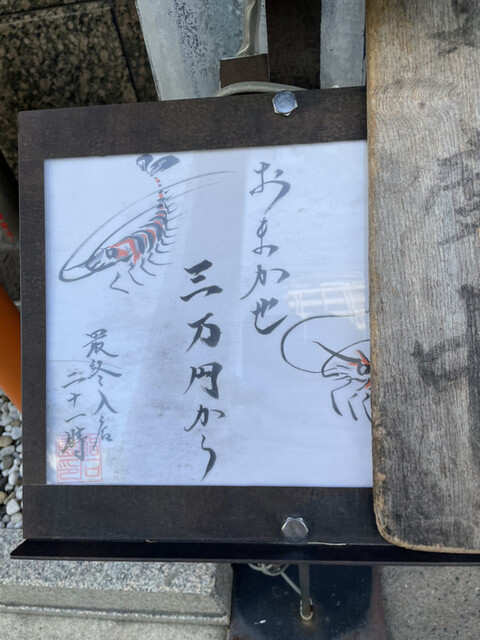 おまかせ
三万円から
最終入店
二十一時